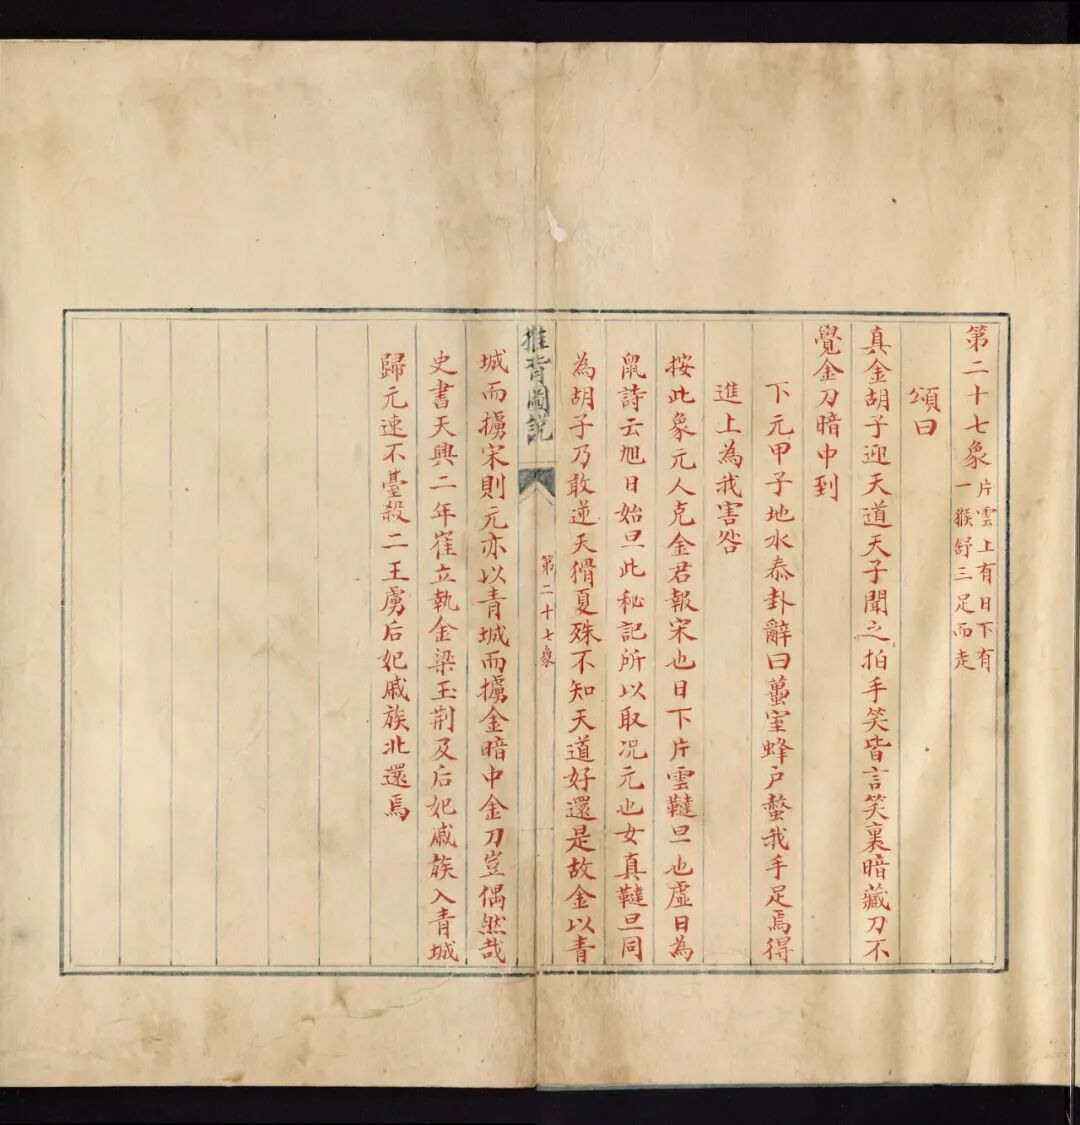 第二十七象
片雲上有日下有
一猴舒三足而走
頌曰
真金胡子迎天道天子聞之拍手笑皆言笑裏暗藏刀不
覺金刀暗中到
下元甲子地水泰卦辭曰蠆室蜂戶螫我手足焉得
進上為我害咎
按此象元人克金君報宋也日下片雲韃旦也虛日為
鼠詩云旭日始旦此秘記所以取况元也女真韃旦同
為胡子乃敢逆天猾夏殊不知天道好還是故金以青
推背圖說
第二十七象
城而擄宋則元亦以青城而擄金暗中金刀豈偶然哉
史書天興二年崔立執金梁王荆及后妃戚族入青城
歸元速不臺殺二王虜后妃戚族北還焉